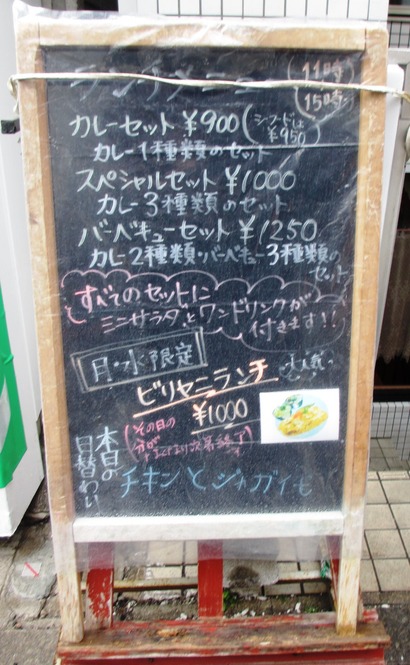 ランチメニュー
11時
〜
15時
カレーセット ¥900(シーフードは¥950)
カレー1種類のセット
スペシャルセット ¥1000
カレー3種類のセット
バーベキューセット ¥1250
カレー2種類・バーベキュー3種類の
セット
すべてのセットに
ミニサラダとワンドリンクが
付きます!!
月・水限定
ビリヤニランチ
人気
¥1000
(その日の
分が
次第終了
本日の
日替わり
チキンとジャガイモ